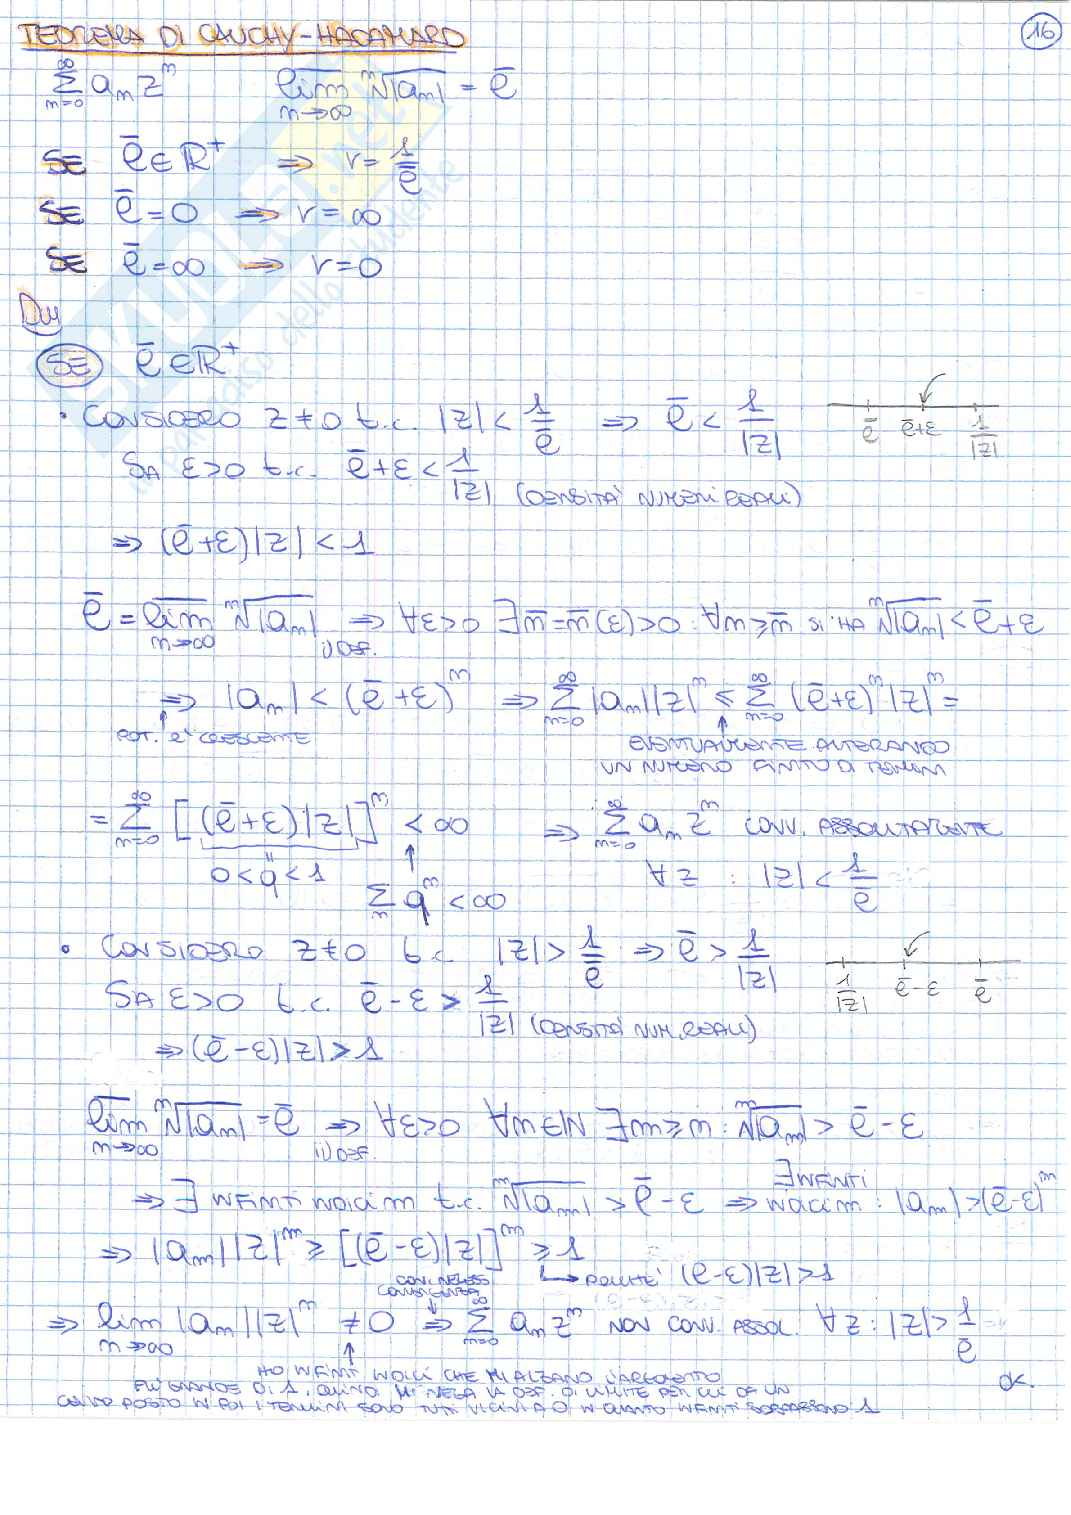 TEOREMA DI CAUCHY-HADAMARD
16
∑_{n=0}^{∞} a_n z^n    \overline{lim}_{n→∞} ⁿ√|a_n| = ē
SE ē ∈ ℝ⁺ ⇒ r = 1/ē
SE ē = 0 ⇒ r = ∞
SE ē = ∞ ⇒ r = 0
Dim
SE ē ∈ ℝ⁺
• CONSIDERO z ≠ 0 t.c. |z| < 1/ē ⇒ ē < 1/|z|
ē    ē+ε    1/|z|
SIA ε>0 t.c. ē+ε < 1/|z| (DENSITÀ NUMERI REALI)
⇒ (ē+ε)|z| < 1
ē = \overline{lim}_{n→∞} ⁿ√|a_n| ⇒ ∀ε>0 ∃n̄=n̄(ε)>0 : ∀n≥n̄ SI HA ⁿ√|a_n| < ē+ε
i) DEF.
⇒ |a_n| < (ē+ε)^n ⇒ ∑_{n=0}^{∞} |a_n||z|^n ≤ ∑_{n=0}^{∞} (ē+ε)^n |z|^n =
POT. E' CRESCENTE
EVENTUALMENTE ALTERANDO
UN NUMERO FINITO DI TERMINI
= ∑_{n=0}^{∞} [(ē+ε)|z|]^n < ∞ ⇒ ∑_{n=0}^{∞} a_n z^n CONV. ASSOLUTAMENTE
0 < q < 1    ∀z : |z| < 1/ē
∑_n q^n < ∞
• CONSIDERO z ≠ 0 t.c. |z| > 1/ē ⇒ ē > 1/|z|
1/|z|    ē-ε    ē
SIA ε>0 t.c. ē-ε > 1/|z| (DENSITÀ NUM. REALI)
⇒ (ē-ε)|z| > 1
\overline{lim}_{n→∞} ⁿ√|a_n| = ē ⇒ ∀ε>0 ∀n∈ℕ ∃m≥n : ᵐ√|a_m| > ē-ε
ii) DEF.
⇒ ∃ INFINITI INDICI m t.c. ᵐ√|a_m| > ē-ε ⇒ ∃ INFINITI INDICI m : |a_m| > (ē-ε)^m
⇒ |a_m||z|^m ≥ [(ē-ε)|z|]^m ≥ 1
POICHE' (ē-ε)|z| > 1
COND. NECESS.
CONVERGENZA
⇒ lim_{n→∞} |a_n||z|^n ≠ 0 ⇒ ∑_{n=0}^{∞} a_n z^n NON CONV. ASSOL. ∀z : |z| > 1/ē
HO INFINITI INDICI CHE MI ALZANO L'ARGOMENTO
PIÙ GRANDE DI 1, QUINDI MI NEGA LA DEF. DI LIMITE PER CUI DA UN
CERTO POSTO IN POI I TERMINI SONO TUTTI VICINI A 0 IN QUANTO INFINITI SORPASSANO 1
OK.
SKUOLA.net
il paradiso dello studente